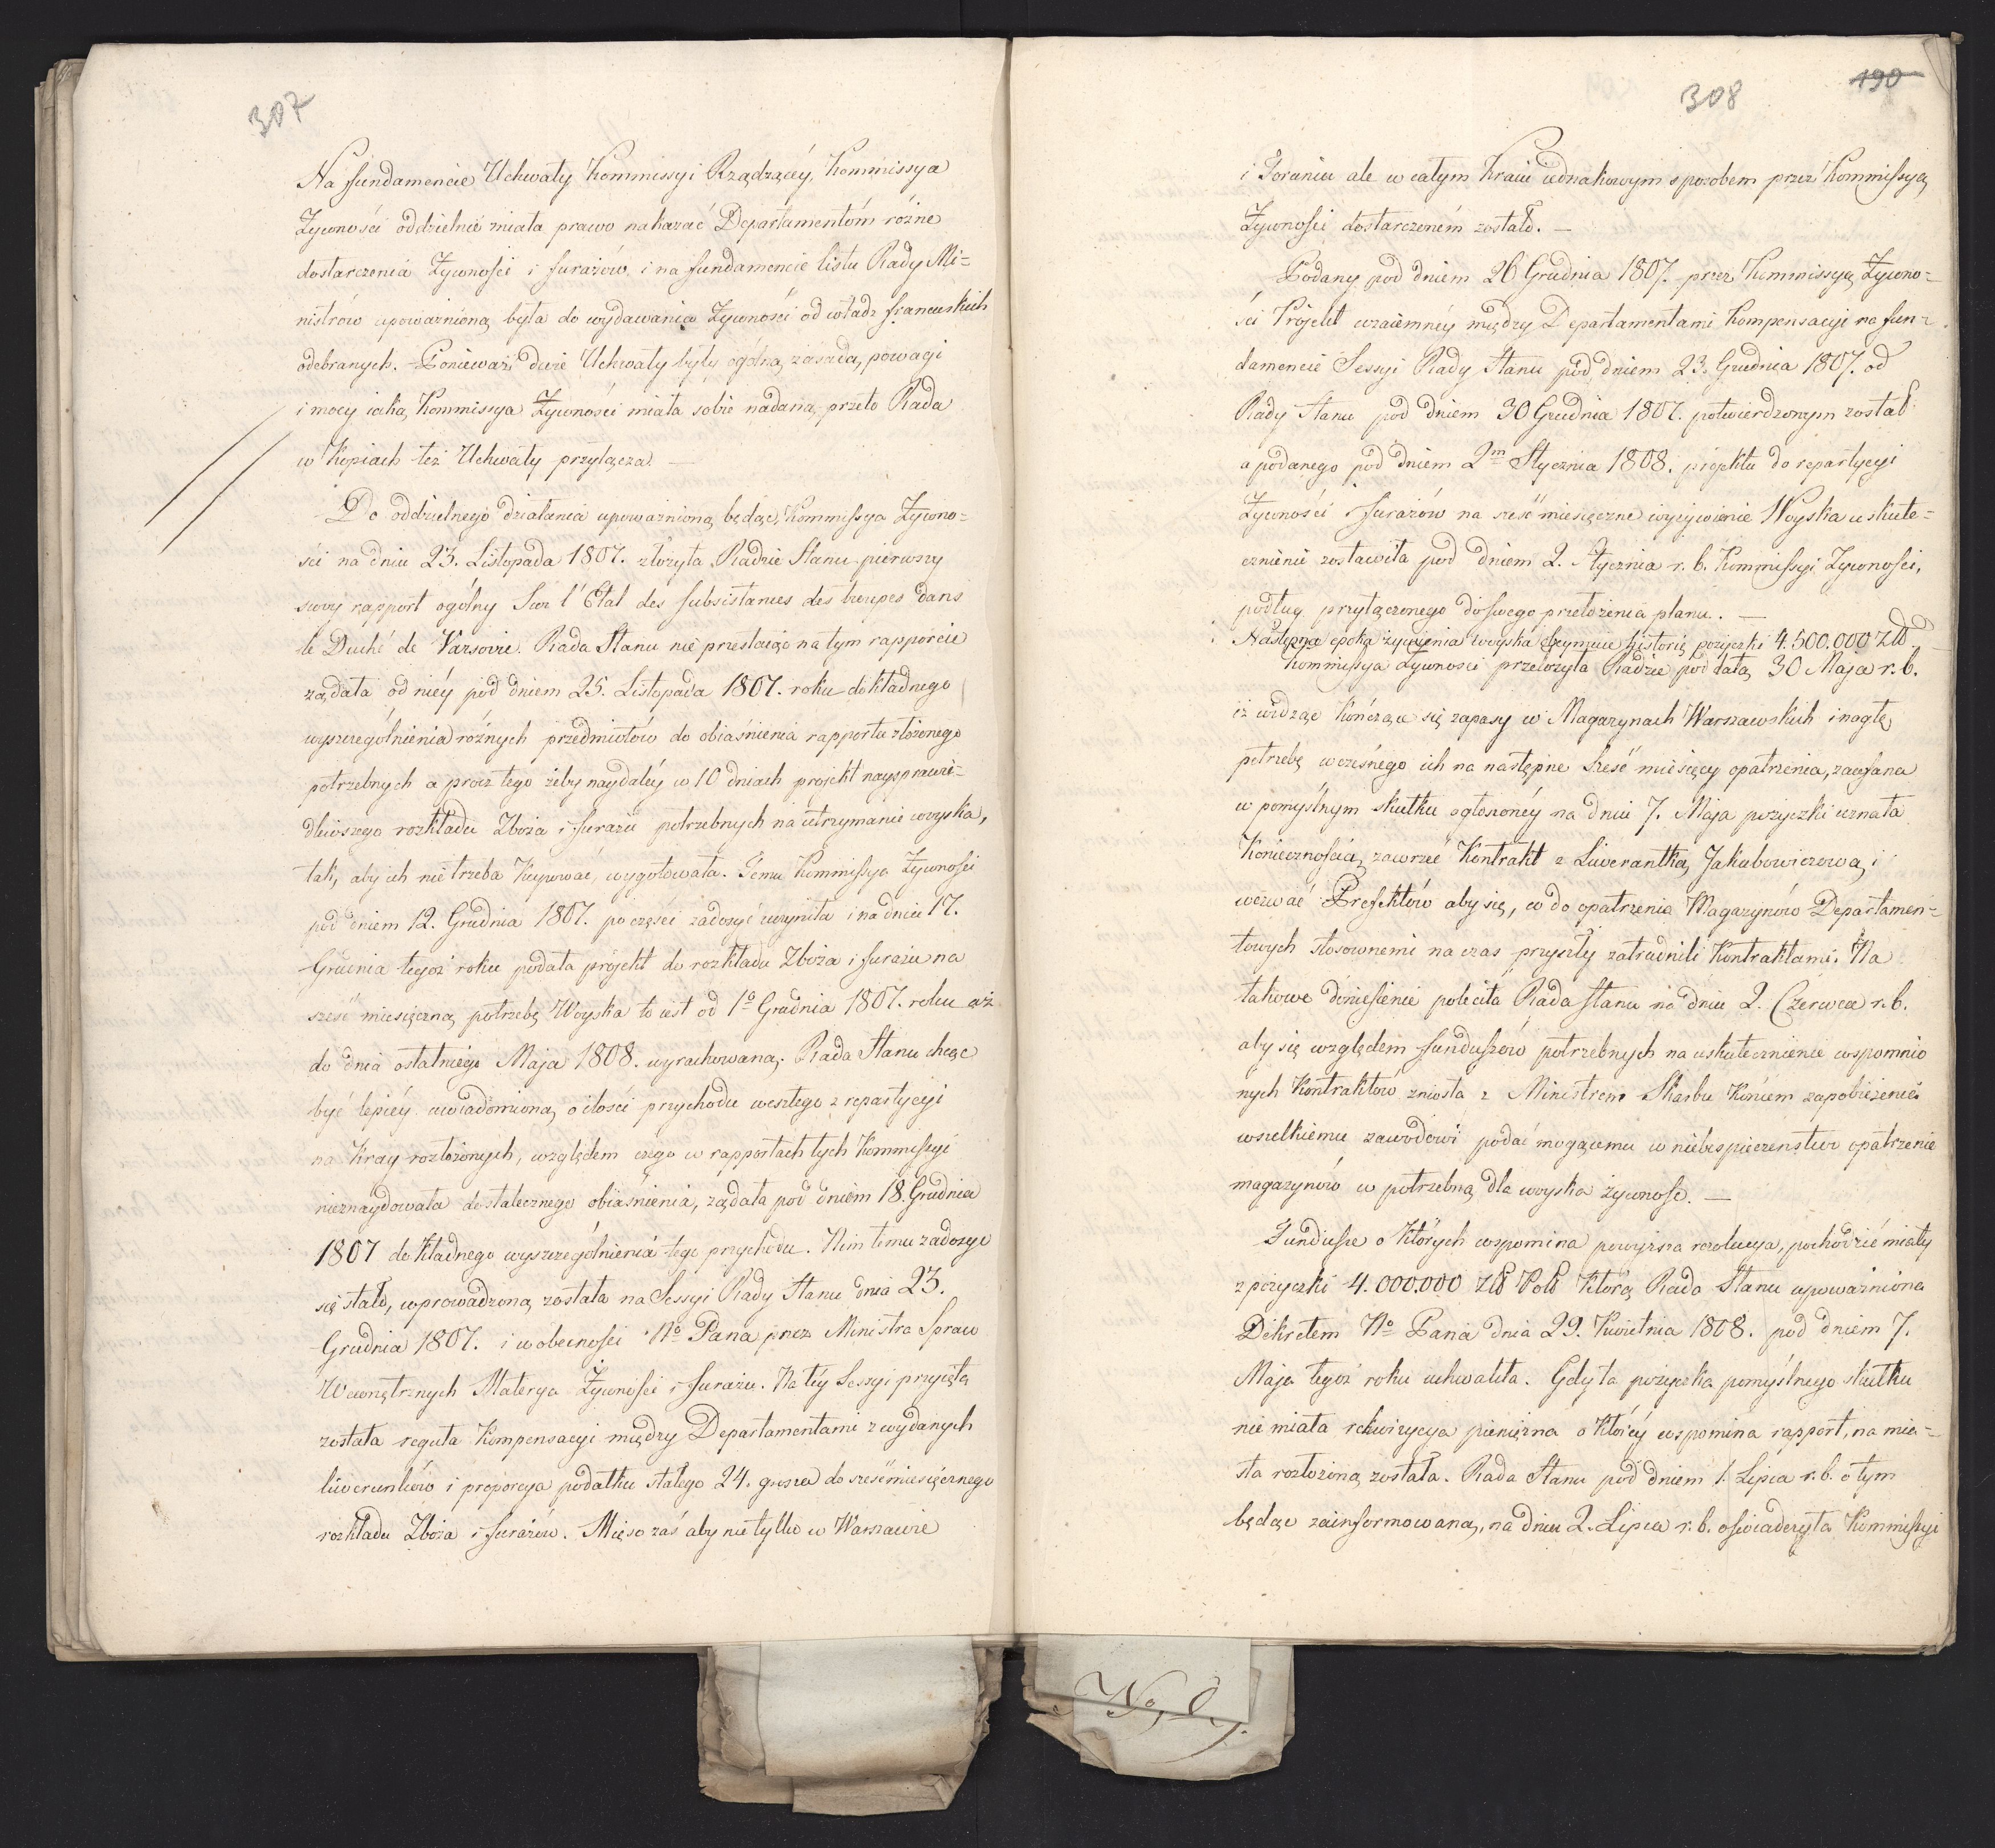 307
Na fundamencie Uchwały Kommissyi Rządzącéy, Kommissya
Żywności oddzielnie miała prawo nakazać Departamentóm różne
dostarczenia Żywnosci i furażów i na fundamencie listu Rady Mi=
nistrów upoważnioną była do wydawania Żywności od władz francuskich
odebranych. Ponieważ dwie Uchwały były ogólną zasadą, powagi
i mocy iaką Kommissya Żywności miała sobie nadaną, przeto Rada
w Kopiach też Uchwały przyłącza. —
Do oddzielnego działania upoważnioną będąc, Kommissya Żywno=
ści na dniu 23. Listopada 1807. złożyła Radzie Stanu pierwszy
swóy rapport ogólny Sur l'Etat des subsistances des troupes dans
le Duché de Varsovie. Rada Stanu nie przestaiąc na tym rapporcie
żądała od niéy pod dniem 25. Listopada 1807. roku dokładnego
wyszczególnienia różnych przedmiotów do obiaśnienia rapportu złożonego
potrzebnych a prócz tego żeby naydaléy w 10 dniach projekt nayspawie=
dliwszego rozkładu Zboża i furażu potrzebnych na utrzymanie woyska,
tak, aby ich nie trzeba Kupować, wygotowała. Temu Kommissya Żywnosci
pod dniem 12. Grudnia 1807. po części zadosyć uczyniła i na dniu 17.
Grudnia tegoż roku podała projekt do rozkładu Zboża i furażu na
sześć miesięczną potrzebę Woyska to iest od 1o Grudnia 1807. roku aż
do dnia ostatniego Maja 1808. wyrachowaną; Rada Stanu chcąc
być lepiéy uwiadomioną o ilości przychodu weszłego z repartycyi
na Kray rozłożonych, względem czego w rapportach tych Kommissyi
nieznaydowała dostatecznego obiaśnienia, żądała pod dniem 18. Grudnia
1807 dokładnego wyszczególnienia tego przychodu. Nim temu zadosyć
się stało, wprowadzoną została na Sessyi Rady Stanu dnia 23.
Grudnia 1807. i w obecnosci No Pana przez Ministra Spraw
Wewnętrznych Materya Żywnosci i furażu. Na téy Sessyi przyięta
została reguła Kompensacyi między Departamentami z wydanych
liwerunków i proporcya podatku stałego 24. grosza do sześćmiesięcznego
rozkładu Zboża i furażów. Mięso zaś aby nie tylko w Warszawie
308
190
i Toraniu ale w całym Kraiu iednakowym sposobem przez Kommissyą
Żywnosci dostarczeném zostało. —
Podany pod dniem 26 Grudnia 1807. przez Kommissyą Żywno=
ści Projekt wzaiemnéy między Departamentami Kompensacyi na fun=
damencie Sessyi Rady Stanu pod dniem 23. Grudnia 1807. od
Rady Stanu pod dniem 30 Grudnia 1807. potwierdzonym został
a podanego pod dniem 2m Stycznia 1808. projektu do repartycyi
Żywności i furażów na sześć miesięczne wyżywienie Woyska uskute=
cznienie zostawiła pod dniem 2. Stycznia r. b. Kommissyi Żywnosci,
podług przyłączonego do swego przełożenia planu. —
Następna epoka żywienia woyska obeymuie historią pożyczki 4.500.000 Zł.
Kommissya Żywności przełożyła Radzie pod datą 30 Maja r. b.
iż widząc kończące się zapasy w Magazynach Warszawskich i nagłą
potrzebę wczesnego ich na następne sześć miesięcy opatrzenia, zaufana
w pomyślnym skutku ogłoszonéy na dniu 7. Maja pożyczki uznała
Koniecznością zawrzeć Kontrakt z Liwerantką Jakubowiczową i
wezwać Prefektów aby się, co do opatrzenia Magazynów Departamen=
towych stosownemi na czas przyszły zatrudnili Kontraktami. Na
takowe doniesienie poleciła Rada Stanu na dniu 2. Czerwca r. b.
aby się względem funduszów potrzebnych na uskutecznienie wspomnio
nych Kontraktów zniosła z Ministrem Skarbu Końcem zapobieżenia
wszelkiemu zawodowi podać mogącemu w niebespieczenstwo opatrzenie
magazynów w potrzebną dla woyska żywnosc. —
Fundusze o których wspomina powyższa rezolucya, pochodzić miały
z pożyczki 4.000.000 Zł Pol Którą Rada Stanu upoważniona
Dekretem No Pana dnia 29. Kwietnia 1808. pod dniem 7.
Maja tegoż roku uchwaliła. Gdy ta pożyczka pomyślnego skutku
nie miała rekwizycya pieniężna o któréy wspomina rapport, na mia=
sta rozłożoną została. Rada Stanu pod dniem 1. Lipca r. b. o tym
będąc zainformowaną, na dniu 2. Lipca r. b. oświadczyła Kommissyi
No,